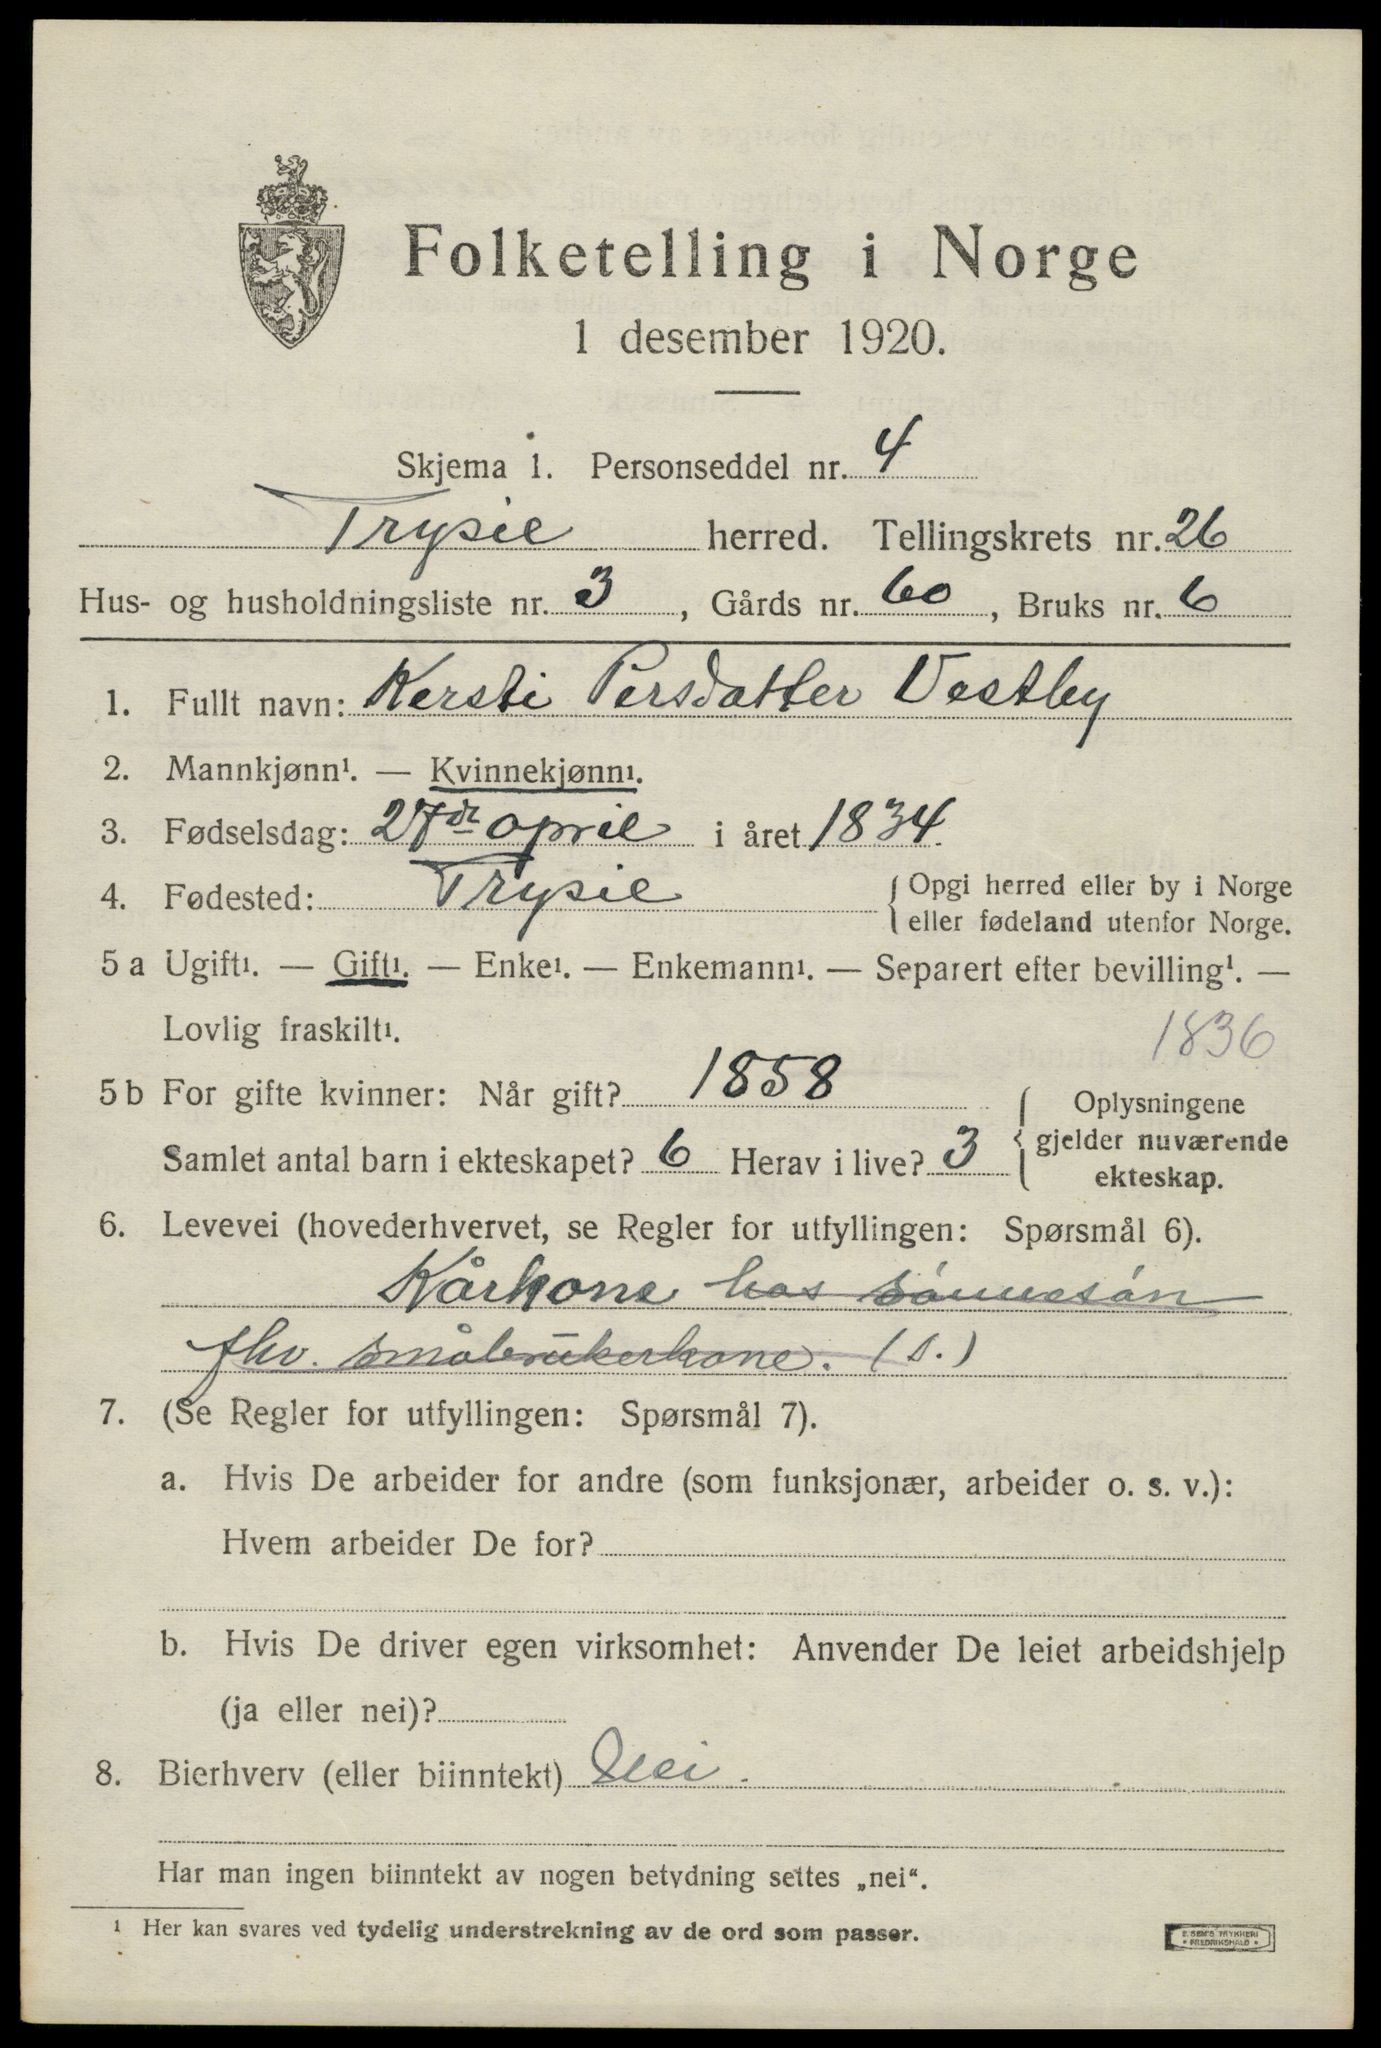 Folketelling i Norge
1 desember 1920.
Skjema 1. Personseddel nr. 4
Trysil herred. Tellingskrets nr. 26
Hus- og husholdningsliste nr. 3, Gårds nr. 60, Bruks nr. 6
1. Fullt navn: Kersti Persdatter Vestby
2. Mannkjønn¹. — Kvinnekjønn¹.
3. Fødselsdag: 27de april i året 1834.
4. Fødested: Trysil { Opgi herred eller by i Norge
eller fødeland utenfor Norge.
5 a Ugift¹. — Gift¹. — Enke¹. — Enkemann¹. — Separert efter bevilling¹. —
Lovlig fraskilt¹.
1836
5 b For gifte kvinner: Når gift? 1858
Samlet antal barn i ekteskapet? 6 Herav i live? 3
{ Oplysningene
gjelder nuværende
ekteskap.
6. Levevei (hovederhvervet, se Regler for utfyllingen: Spørsmål 6).
Kårkone hos sønnesøn
fhv. småbrukerkone. (s.)
7. (Se Regler for utfyllingen: Spørsmål 7).
a. Hvis De arbeider for andre (som funksjonær, arbeider o. s. v.):
Hvem arbeider De for?
b. Hvis De driver egen virksomhet: Anvender De leiet arbeidshjelp
(ja eller nei)?
8. Bierhverv (eller biinntekt) Nei.
Har man ingen biinntekt av nogen betydning settes „nei“.
¹ Her kan svares ved tydelig understrekning av de ord som passer.
E. SEM'S TRYKKERI
FREDRIKSHALD